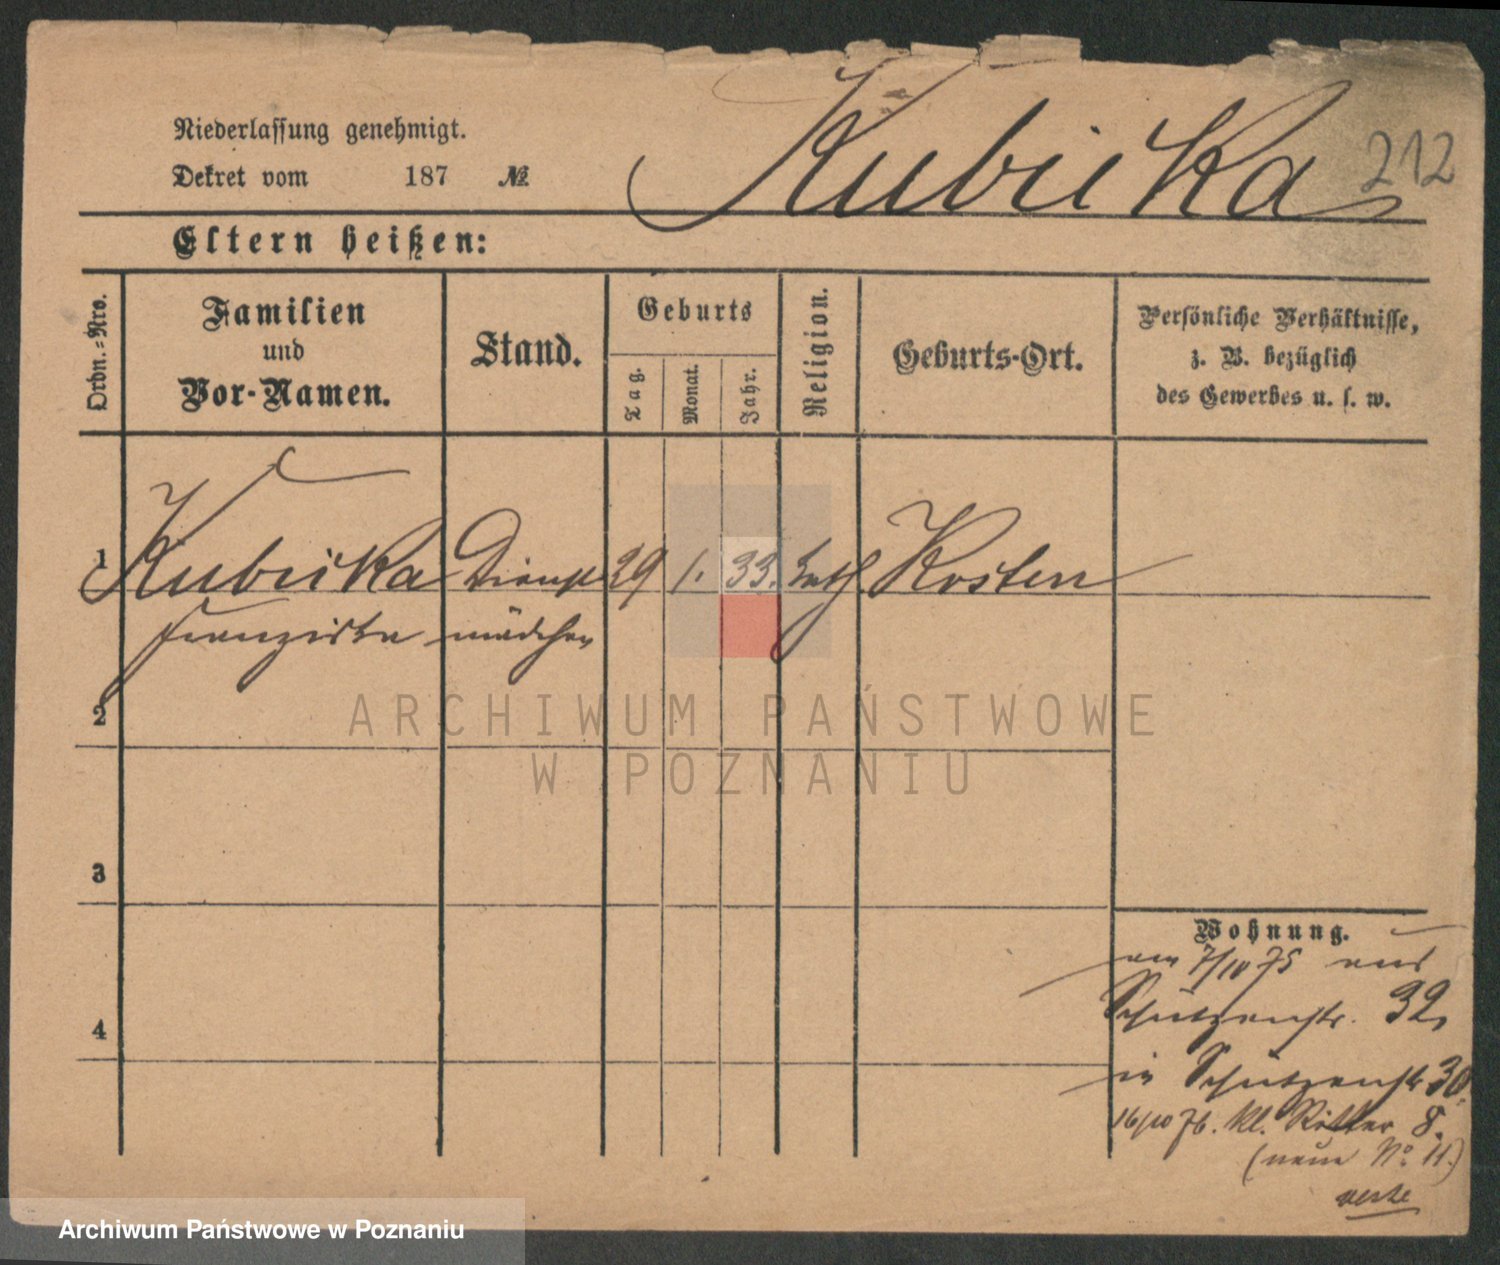 Niederlassung genehmigt.
Dekret vom 187 №
Kubicka
212
Eltern heißen:
Ordn.-Nro.
Familien
und
Vor-Namen.
Stand.
Geburts
Tag.
Monat.
Jahr.
Religion.
Geburts-Ort.
Persönliche Verhältnisse,
z. B. bezüglich
des Gewerbes u. s. w.
1 Kubicka Dienst 29 1. 33. kath Kosten
Franziska mädchen
2
3
4
Wohnung.
am 7/10 75 aus
Schützenstr. 32,
in Schützenstr 30.
16/10 76. kl. Ritter 8.
(neue No 11.)
ARCHIWUM PAŃSTWOWE
W POZNANIU
Archiwum Państwowe w Poznaniu